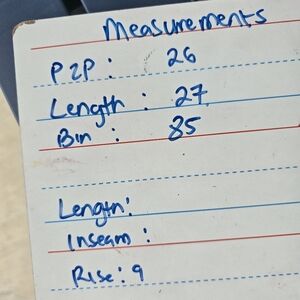 Measurements
P2P : 26
Length : 27
Bin : 85
Length:
Inseam :
Rise: 9